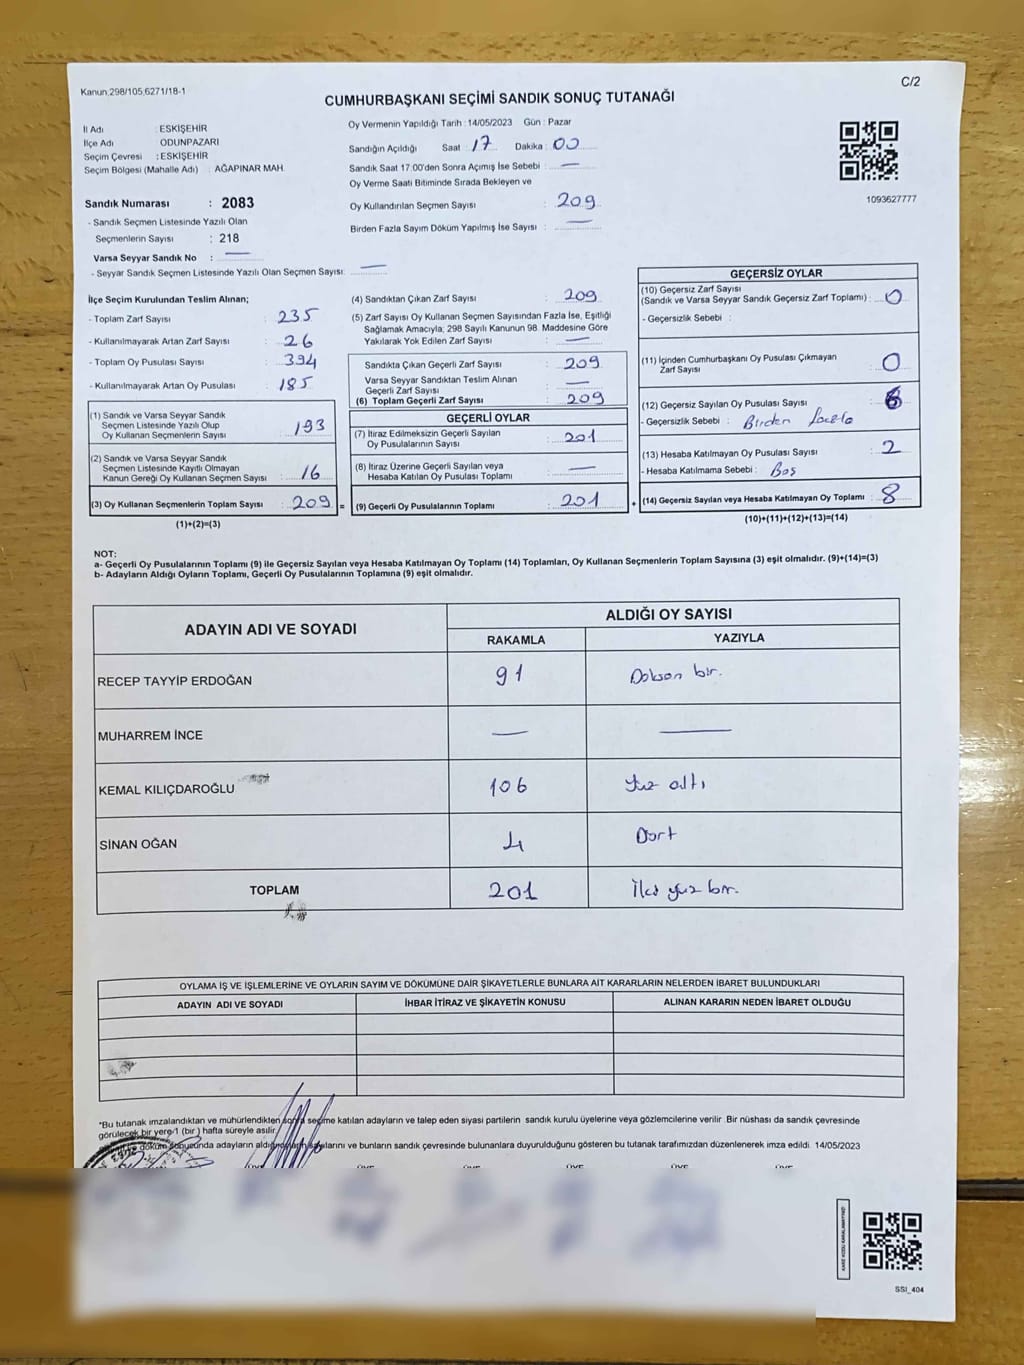 Kanun,298/105,6271/18-1
C/2
CUMHURBAŞKANI SEÇİMİ SANDIK SONUÇ TUTANAĞI
İl Adı : ESKİŞEHİR
İlçe Adı ODUNPAZARI
Seçim Çevresi : ESKİŞEHİR
Seçim Bölgesi (Mahalle Adı) : AĞAPINAR MAH.
Sandık Numarası : 2083
- Sandık Seçmen Listesinde Yazılı Olan
Seçmenlerin Sayısı : 218
Varsa Seyyar Sandık No : —
- Seyyar Sandık Seçmen Listesinde Yazılı Olan Seçmen Sayısı: —
Oy Vermenin Yapıldığı Tarih : 14/05/2023 Gün : Pazar
Sandığın Açıldığı Saat : 17 Dakika : 00
Sandık Saat 17:00'den Sonra Açımış İse Sebebi : —
Oy Verme Saati Bitiminde Sırada Bekleyen ve
Oy Kullandırılan Seçmen Sayısı : 209
Birden Fazla Sayım Döküm Yapılmış İse Sayısı : —
1093627777
İlçe Seçim Kurulundan Teslim Alınan;
- Toplam Zarf Sayısı : 235
- Kullanılmayarak Artan Zarf Sayısı : 26
- Toplam Oy Pusulası Sayısı : 394
- Kullanılmayarak Artan Oy Pusulası : 185
(1) Sandık ve Varsa Seyyar Sandık
Seçmen Listesinde Yazılı Olup
Oy Kullanan Seçmenlerin Sayısı : 193
(2) Sandık ve Varsa Seyyar Sandık
Seçmen Listesinde Kayıtlı Olmayan
Kanun Gereği Oy Kullanan Seçmen Sayısı : 16
(3) Oy Kullanan Seçmenlerin Toplam Sayısı : 209 =
(1)+(2)=(3)
(4) Sandıktan Çıkan Zarf Sayısı : 209
(5) Zarf Sayısı Oy Kullanan Seçmen Sayısından Fazla İse, Eşitliği
Sağlamak Amacıyla; 298 Sayılı Kanunun 98. Maddesine Göre
Yakılarak Yok Edilen Zarf Sayısı : —
Sandıkta Çıkan Geçerli Zarf Sayısı : 209
Varsa Seyyar Sandıktan Teslim Alınan
Geçerli Zarf Sayısı : —
(6) Toplam Geçerli Zarf Sayısı : 209
GEÇERLİ OYLAR
(7) İtiraz Edilmeksizin Geçerli Sayılan
Oy Pusulalarının Sayısı : 201
(8) İtiraz Üzerine Geçerli Sayılan veya
Hesaba Katılan Oy Pusulası Toplamı : —
(9) Geçerli Oy Pusulalarının Toplamı : 201 +
GEÇERSİZ OYLAR
(10) Geçersiz Zarf Sayısı
(Sandık ve Varsa Seyyar Sandık Geçersiz Zarf Toplamı) : 0
- Geçersizlik Sebebi :
(11) İçinden Cumhurbaşkanı Oy Pusulası Çıkmayan
Zarf Sayısı 0
(12) Geçersiz Sayılan Oy Pusulası Sayısı : 6
- Geçersizlik Sebebi : Birden fazla
(13) Hesaba Katılmayan Oy Pusulası Sayısı : 2
- Hesaba Katılmama Sebebi : Boş
(14) Geçersiz Sayılan veya Hesaba Katılmayan Oy Toplamı : 8
(10)+(11)+(12)+(13)=(14)
NOT:
a- Geçerli Oy Pusulalarının Toplamı (9) ile Geçersiz Sayılan veya Hesaba Katılmayan Oy Toplamı (14) Toplamları, Oy Kullanan Seçmenlerin Toplam Sayısına (3) eşit olmalıdır. (9)+(14)=(3)
b- Adayların Aldığı Oyların Toplamı, Geçerli Oy Pusulalarının Toplamına (9) eşit olmalıdır.
ADAYIN ADI VE SOYADI
ALDIĞI OY SAYISI
RAKAMLA YAZIYLA
RECEP TAYYİP ERDOĞAN 91 Doksan bir.
MUHARREM İNCE — —
KEMAL KILIÇDAROĞLU 106 Yüz altı
SİNAN OĞAN 4 Dört
TOPLAM 201 İki yüz bir.
OYLAMA İŞ VE İŞLEMLERİNE VE OYLARIN SAYIM VE DÖKÜMÜNE DAİR ŞİKAYETLERLE BUNLARA AİT KARARLARIN NELERDEN İBARET BULUNDUKLARI
ADAYIN ADI VE SOYADI İHBAR İTİRAZ VE ŞİKAYETİN KONUSU ALINAN KARARIN NEDEN İBARET OLDUĞU
*Bu tutanak imzalandıktan ve mühürlendikten sonra seçime katılan adayların ve talep eden siyasi partilerin sandık kurulu üyelerine veya gözlemcilerine verilir. Bir nüshası da sandık çevresinde
görülecek bir yere 1 (bir ) hafta süreyle asılır.
döküm sonucunda adayların aldığı oy sayılarını ve bunların sandık çevresinde bulunanlara duyurulduğunu gösteren bu tutanak tarafımızdan düzenlenerek imza edildi. 14/05/2023
ÜYE ÜYE ÜYE ÜYE ÜYE
SSI_404